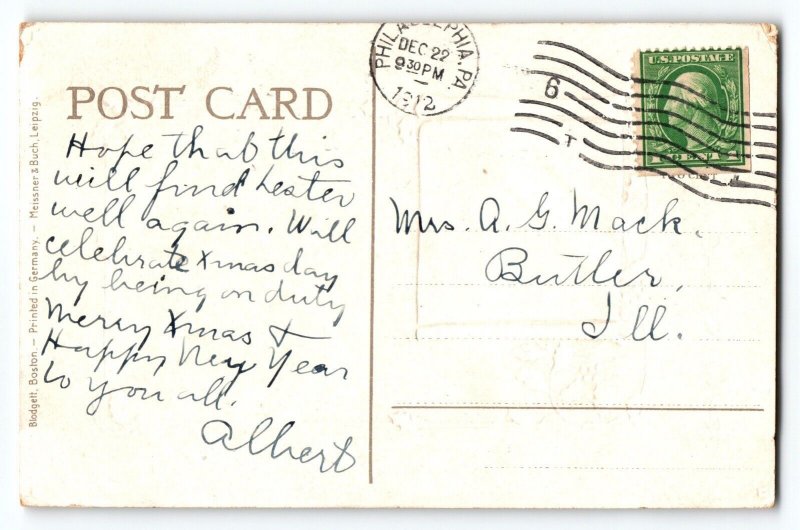 PHILADELPHIA, PA.
DEC 22
9 30 PM
1912
6
T
U.S. POSTAGE
POST CARD
Hope that this
will find Lester
well again. Will
celebrate Xmas day
by being on duty
Merry Xmas &
Happy New Year
to you all.
Albert
Mrs. A. G. Mack.
Butler,
Ill.
Blodgett, Boston. – Printed in Germany. – Meissner & Buch, Leipzig.